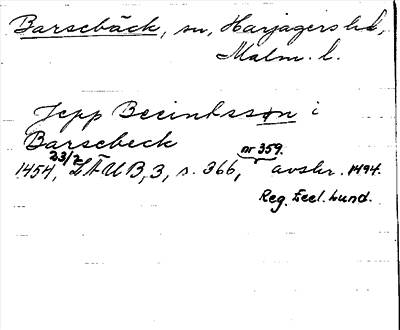 Barsebäck, sn, Harjagers hd,
Malm. l.
Jepp Becinksson i
Barsebeck
1454, 23/2, LÄUB, 3, s. 366, nr 359. avskr. 1494.
Reg. Eccl. Lund.